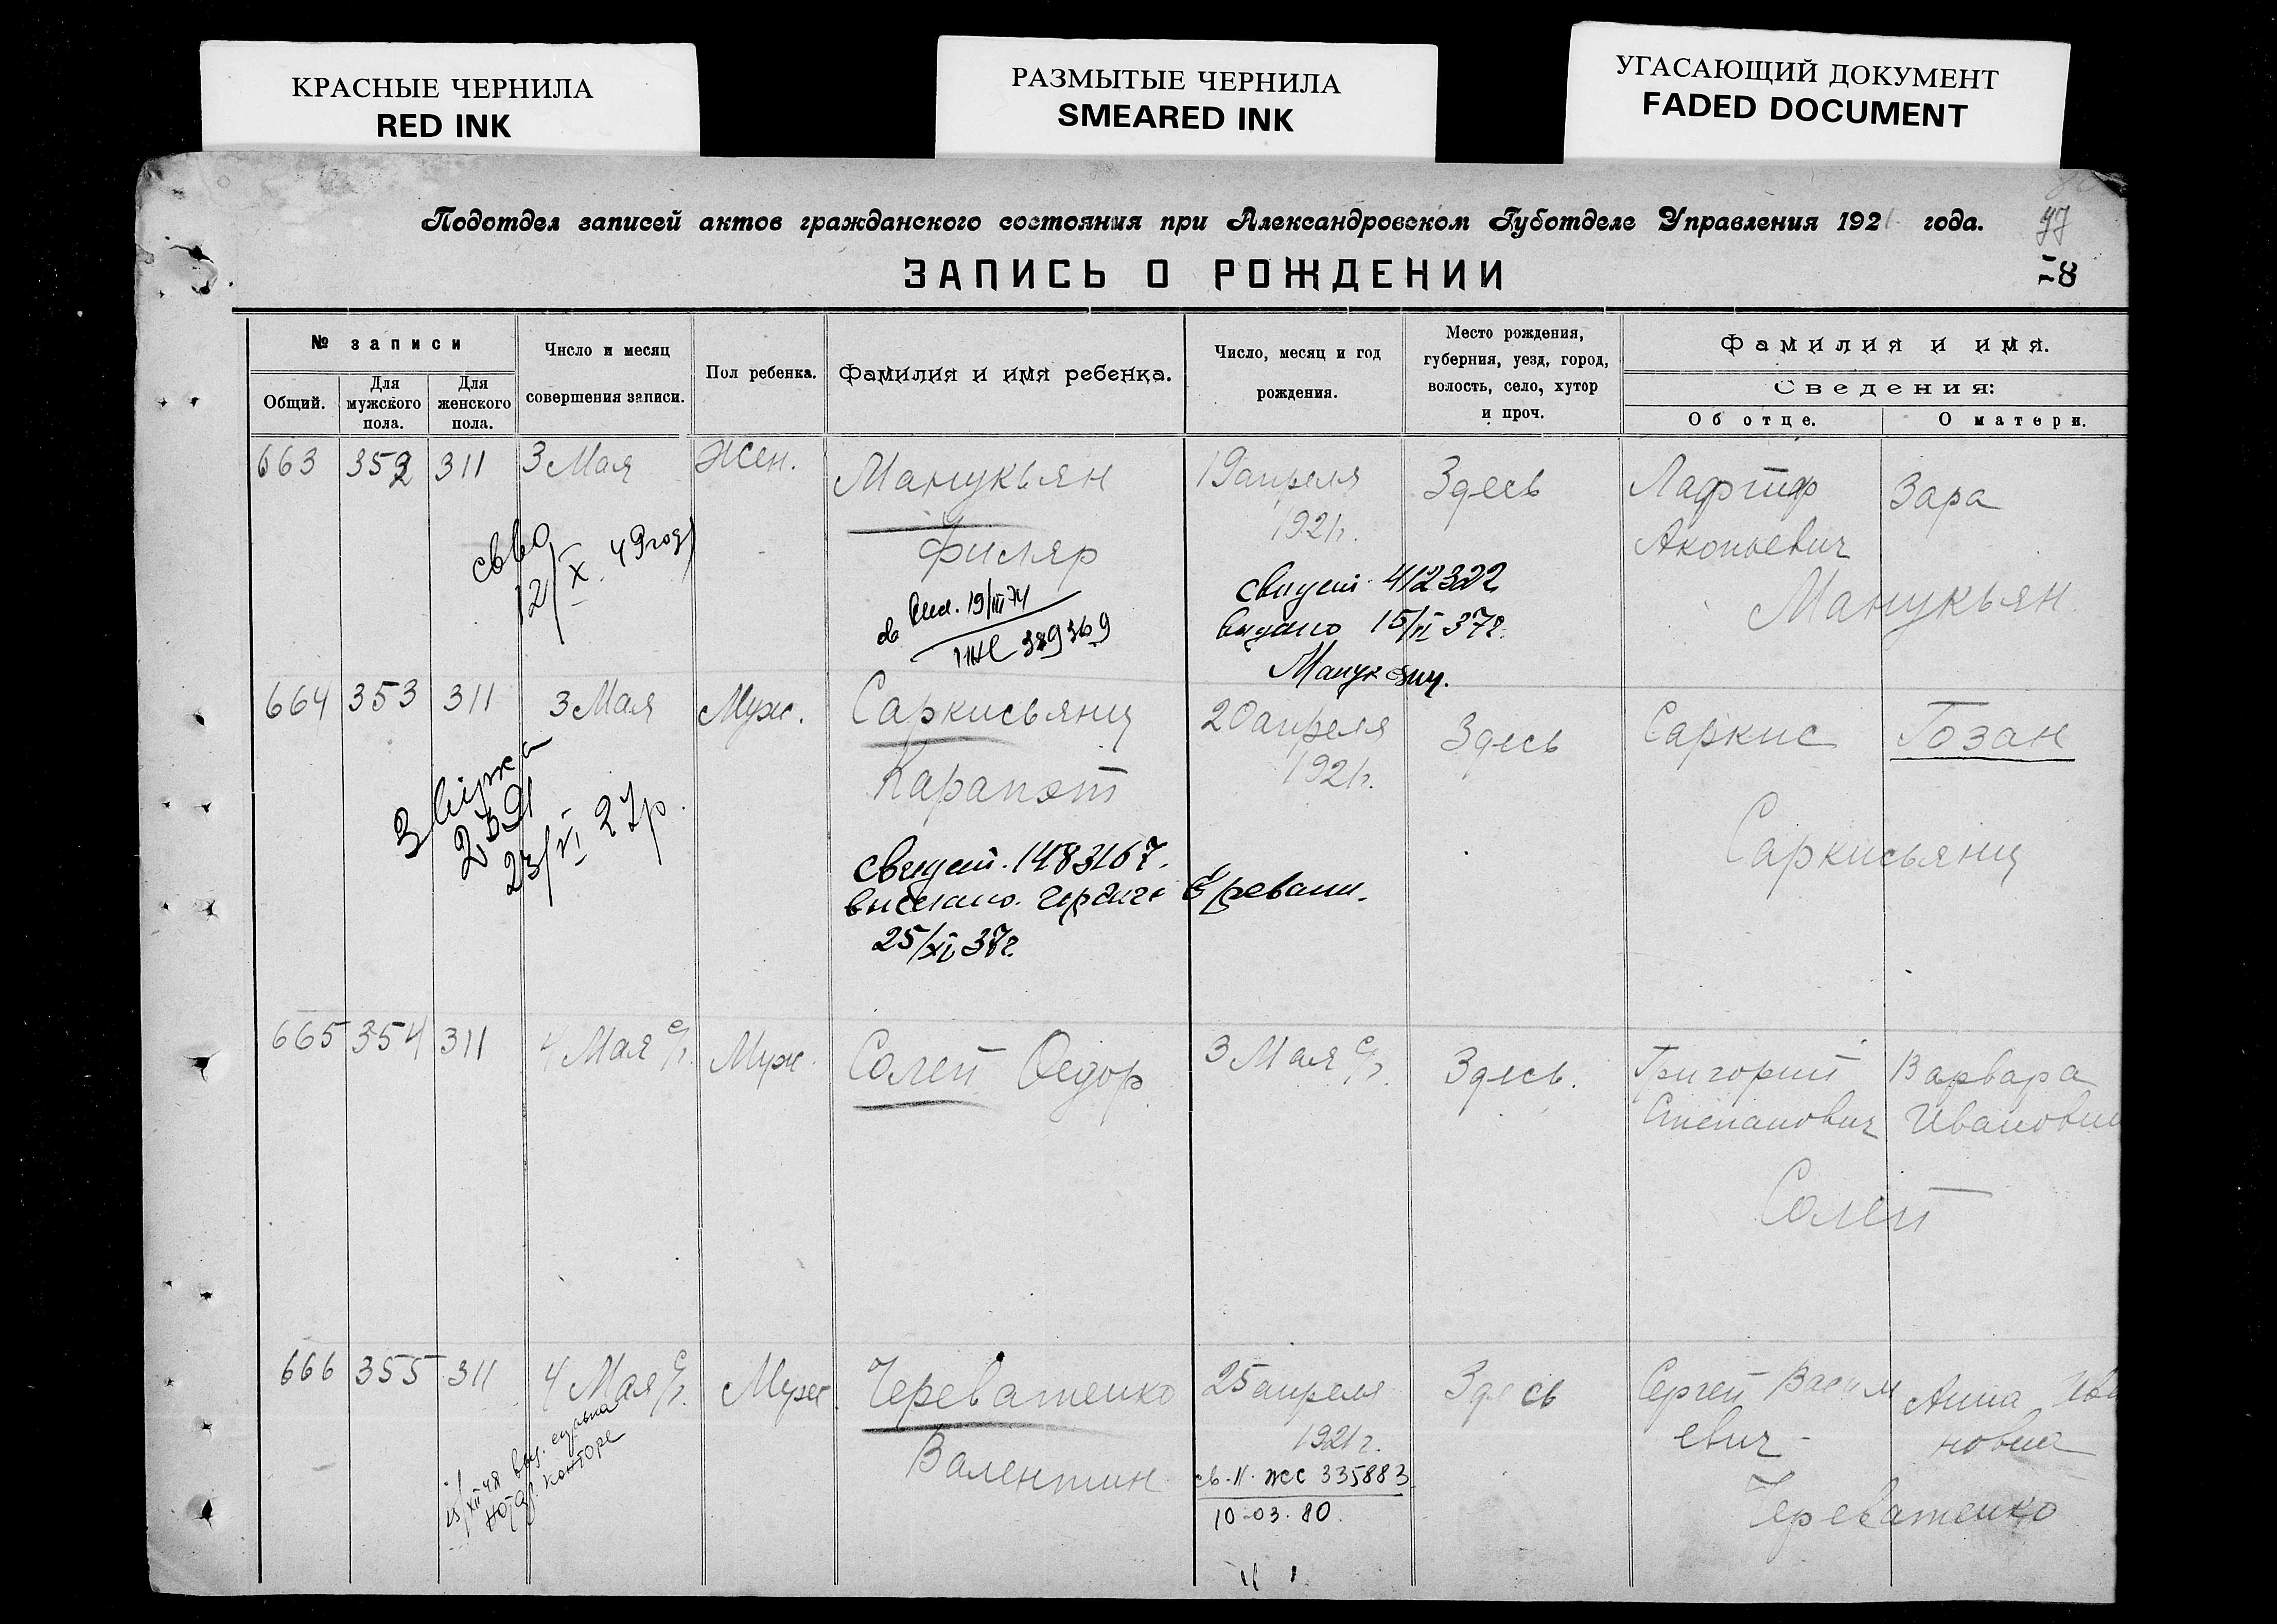 КРАСНЫЕ ЧЕРНИЛА
RED INK
РАЗМЫТЫЕ ЧЕРНИЛА
SMEARED INK
УГАСАЮЩИЙ ДОКУМЕНТ
FADED DOCUMENT
Подотдел записей актов гражданского состояния при Александровском Губотделе Управления 1921 года.
77
78
ЗАПИСЬ О РОЖДЕНИИ
№ записи
Общий.
Для мужского пола.
Для женского пола.
Число и месяц
совершения записи.
Пол ребенка.
Фамилия и имя ребенка.
Число, месяц и год
рождения.
Место рождения,
губерния, уезд, город,
волость, село, хутор
и проч.
Фамилия и имя.
Сведения:
Об отце.
О матери.
663 352 311 3 Мая Жен. Манукьян 19 апреля Здесь Зара
1921г.
Акопьевич
12/X 49год
Манукьян
свидет 412322
выдано 15/VI 37г.
19/III 74
389369
664 353 311 3 Мая Муж. Саркисьянц 20 апреля Здесь Саркис Гозан
Карапэт 1921г.
Саркисьянц
2391
23/VI 27р.
свидет. 1483167.
выслано. Еревани.
25/XI 37г.
665 354 311 4 Мая с/г. Муж. Солей Федор 3 Мая с/г. Здесь. Григорий Варвара
Степанович Ивановна
Солей
666 355 311 4 Мая с/г. Муж. Череватенко 25 апреля Здесь Сергей Васил Анна Ива
1921г. евич новна
Валентин
Череватенко
св. II-ЖС 335883
10-03.80.
конторе